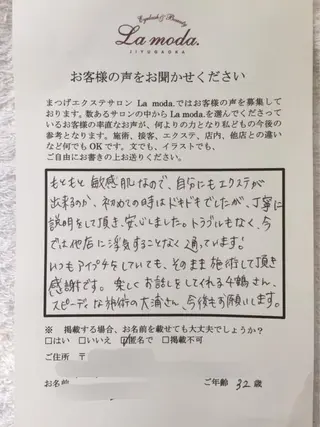 Eyelash & Beauty
La moda.
JIYUGAOKA
お客様の声をお聞かせください
まつげエクステサロン La moda.ではお客様の声を募集して
おります。数あるサロンの中からLa moda.を選んでくださって
いるお客様の率直なお声が、何よりの力となり私どもの今後の
参考となります。施術、接客、エクステ、店内、他店との違い
など何でもOKです。文でも、イラストでも、
ご自由にお書きの上お送りください。
もともと敏感肌なので、自分にもエクステが
出来るのか、初めての時はドキドキでしたが、丁寧に
説明をして頂き、安心しました。トラブルもなく、今
では他店に浮気することなく通っています!
いつもアイプチをしていても、そのまま施術して頂き
感謝です。楽しくお話しをしてくれる千鶴さん、
スピーディな神術の大浦さん、今後もお願いします。
※ 掲載する場合、お名前を載せても大丈夫でしょうか?
□はい □いいえ ☑匿名で □掲載不可
ご住所 〒
お名前 ご年齢 32 歳